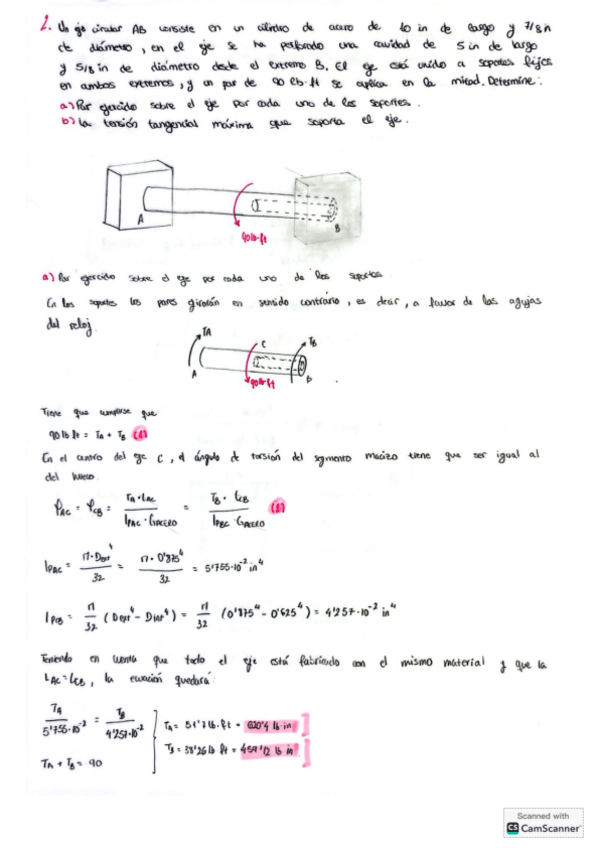 1. Un eje circular AB consiste en un cilindro de acero de 10 in de largo y 7/8 in
de diámetro, en el eje se ha perforado una cavidad de 5 in de largo
y 5/8 in de diámetro desde el extremo B. El eje está unido a soportes fijos
en ambos extremos, y un par de 90 lb·ft se aplica en la mitad. Determine:
a) Par ejercido sobre el eje por cada uno de los soportes.
b) La tensión tangencial máxima que soporta el eje.
A
90 lb·ft
B
a) Par ejercido sobre el eje por cada uno de los soportes
En los soportes los pares girarán en sentido contrario, es decir, a favor de las agujas
del reloj.
TA
C
TB
A
90 lb·ft
B
Tiene que cumplirse que
90 lb ft = TA + TB (1)
En el centro del eje C, el ángulo de torsión del segmento macizo tiene que ser igual al
del hueco.
φAC = φCB = TA·LAC / IPAC·GACERO = TB·LCB / IPBC·GACERO (2)
IPAC = π·Dext⁴ / 32 = π·0'875⁴ / 32 = 5'755·10⁻² in⁴
IPCB = π/32 (Dext⁴ - Dint⁴) = π/32 (0'875⁴ - 0'625⁴) = 4'257·10⁻² in⁴
Teniendo en cuenta que todo el eje está fabricado con el mismo material y que la
LAC = LCB, la ecuación quedará:
TA / 5'755·10⁻² = TB / 4'257·10⁻²
TA = 51'7 lb·ft = 620'4 lb·in
TB = 38'26 lb ft = 459'12 lb in
TA + TB = 90
Scanned with
CS CamScanner